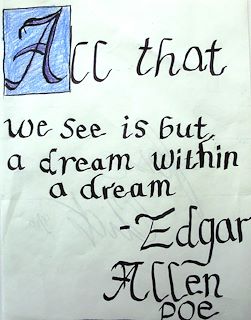 All that
we see is but
a dream within
a dream
- Edgar
Allen
POE